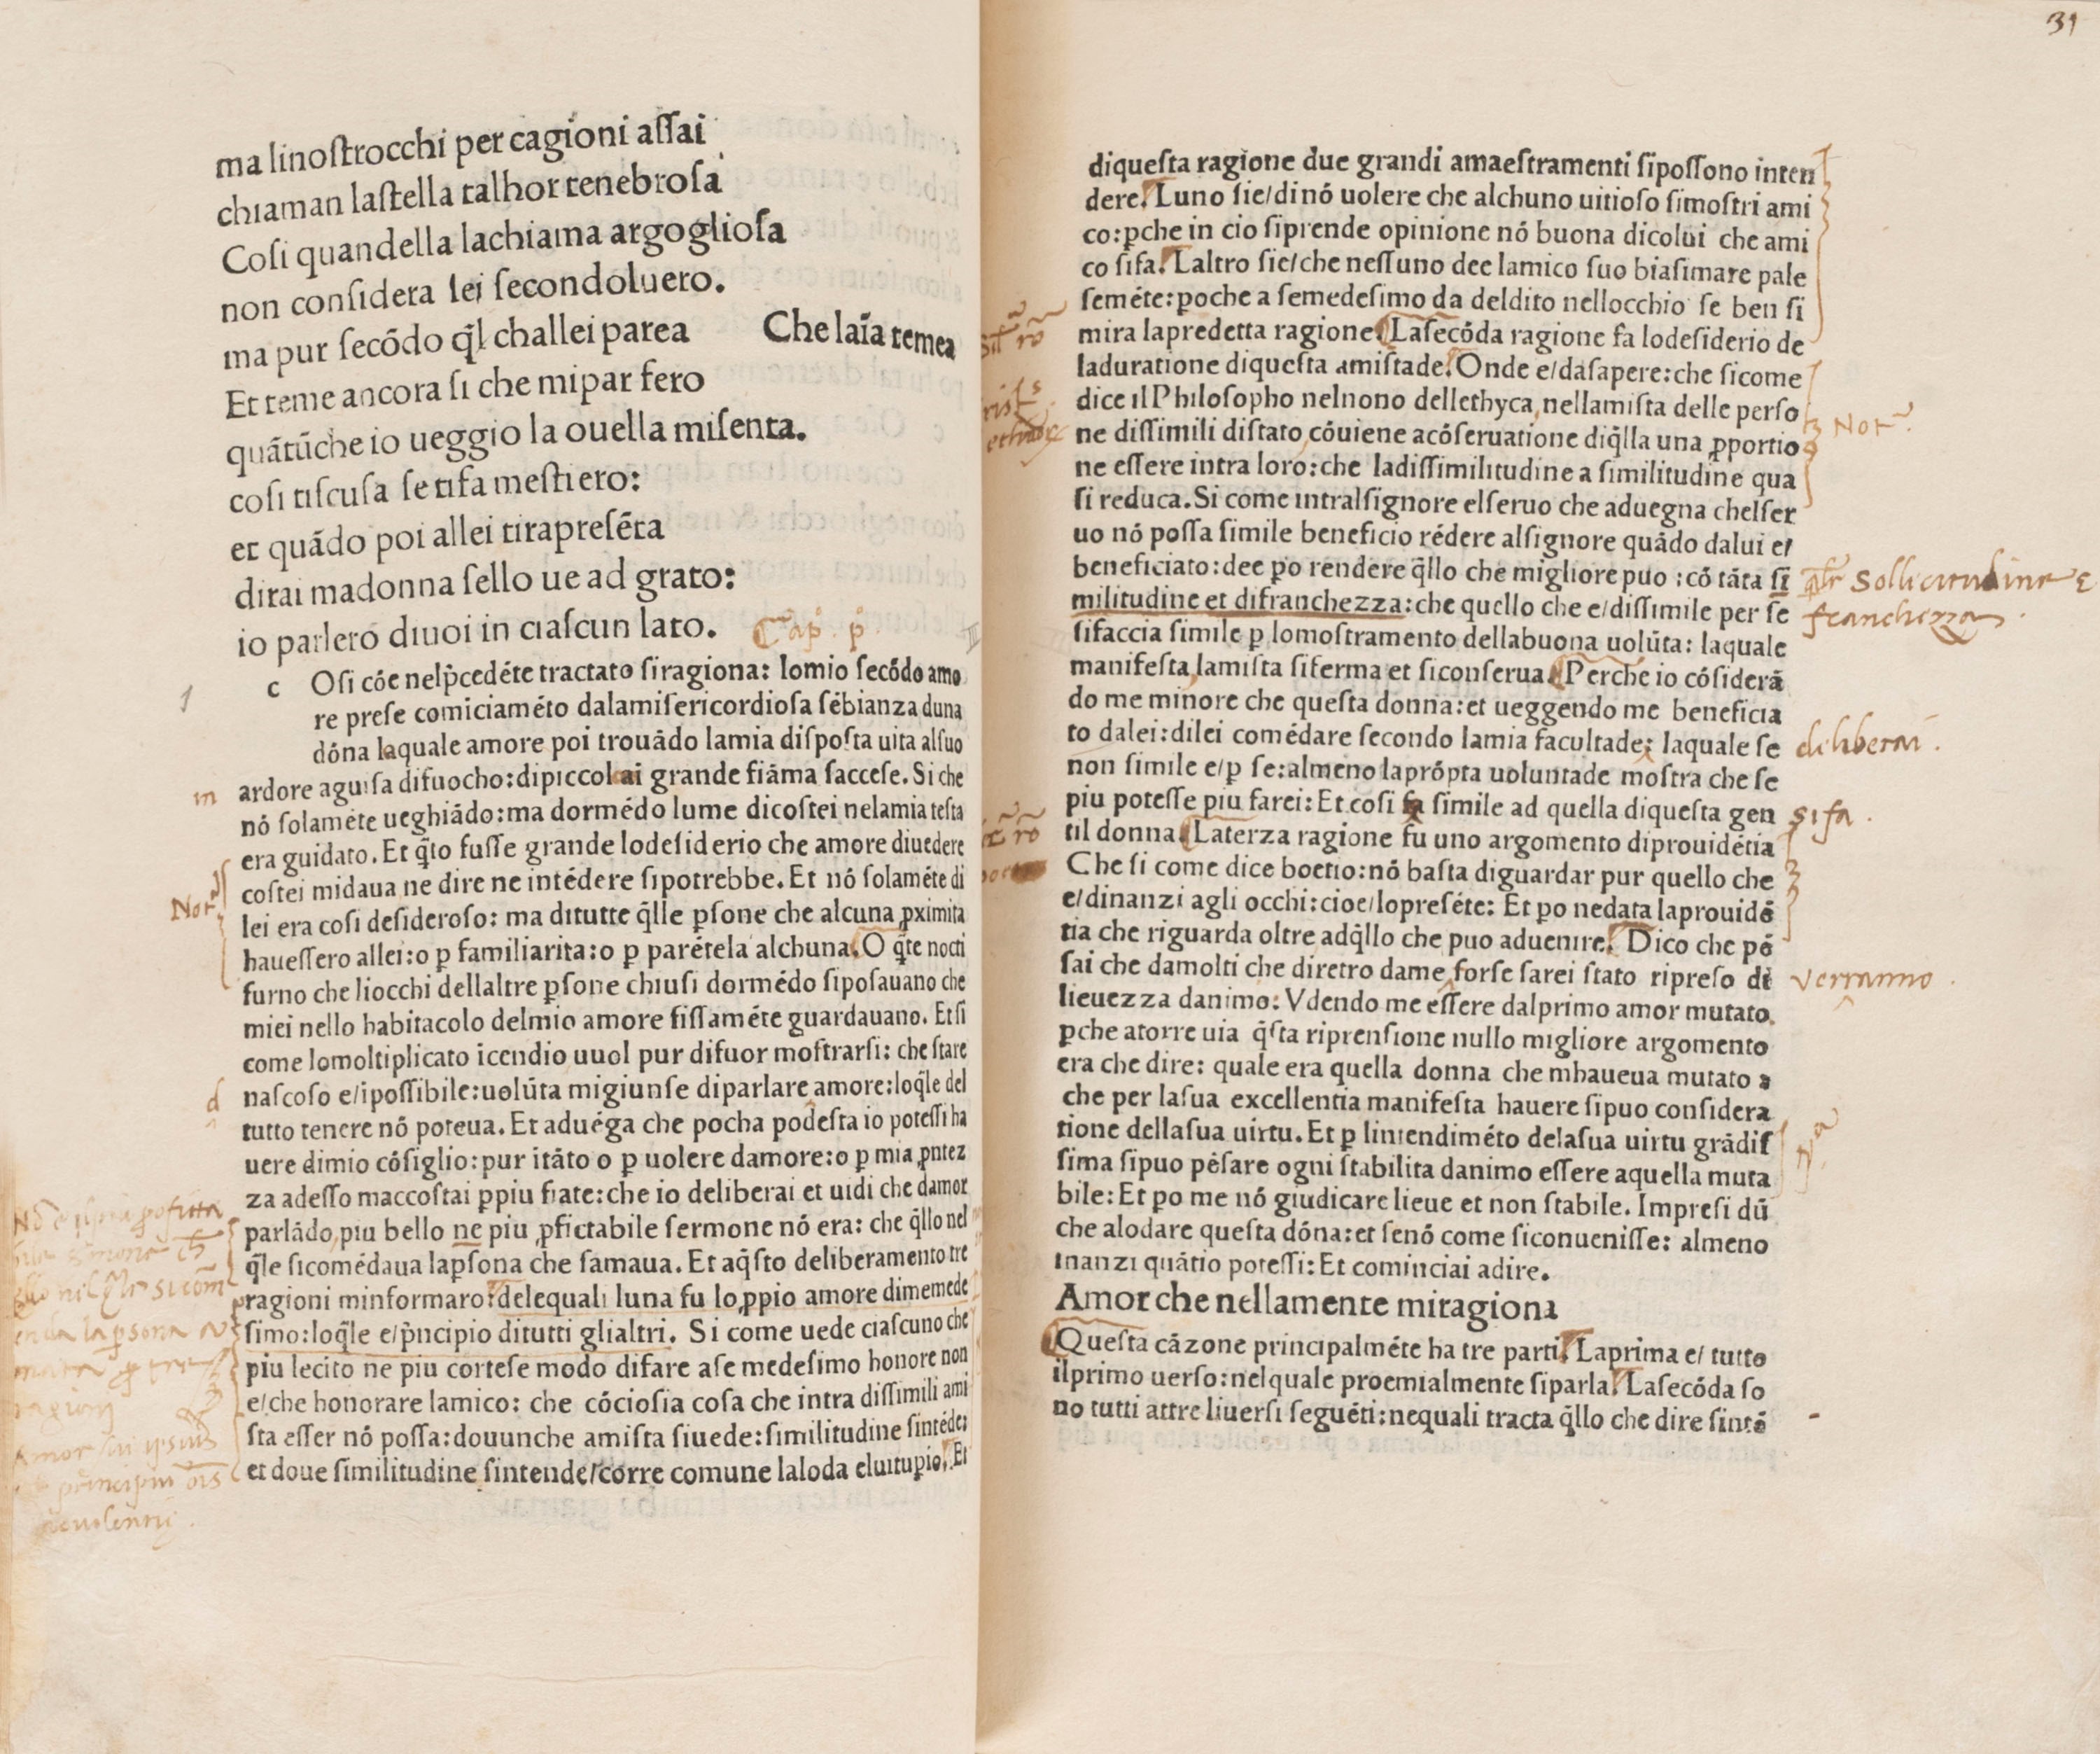 ma linoſtrocchi per cagioni aſſai
chiaman laſtella talhor tenebroſa
Coſi quandella lachiama argoglioſa
non conſidera lei ſecondoluero.
ma pur ſecōdo q̄l challei parea Che laīa temea
Et teme ancora ſi che mipar fero
quātūche io ueggio la ouella miſenta.
coſi tiſcuſa ſe tifa meſtiero:
et quādo poi allei tirapreſēta
dirai madonna ſello ue ad grato:
io parlero diuoi in ciaſcun lato.
Cap. p.
1
c Oſi cóe nelp̄cedéte tractato ſiragiona: lomio ſecódo amo
re preſe comīciaméto dalamiſericordioſa ſébianza duna
dóna laquale amore poi trouādo lamia diſpoſta uita alſuo
ardore aguiſa difuocho: dipiccol ai grande fiāma ſacceſe. Si che
in
nó ſolaméte ueghiādo: ma dormédo lume dicoſtei nelamia teſta
era guidato. Et q̄to fuſſe grande lodeſiderio che amore diuedere
coſtei midaua ne dire ne intédere ſipotrebbe. Et nó ſolaméte di
Nota
lei era coſi deſideroſo: ma ditutte q̄lle ꝑſone che alcuna ꝓximita
haueſſero allei: o ꝑ familiarita: o ꝑ parétela alchuna. O q̄te nocti
furno che liocchi dellaltre ꝑſone chiuſi dormédo ſipoſauano che
miei nello habitacolo delmio amore fiſſaméte guardauano. Et ſi
come lomoltiplicato īcendio uuol pur difuor moſtrarſi: che ſtare
naſcoſo e/ipoſſibile: uolūta migiunſe diparlare amore: loq̄le del
d
tutto tenere nó poteua. Et aduéga che pocha podeſta io poteſſi ha
uere dimio cóſiglio: pur itāto o ꝑ uolere damore: o ꝑ mia ꝓntez
za adeſſo maccoſtai ꝑpiu fiate: che io deliberai et uidi che damor
parlādo, piu bello ne piu ꝓfictabile ſermone nó era: che q̄llo nel
q̄le ſicomédaua lapſona che ſamaua. Et aq̄ſto deliberamento tre
ragioni minformaro: delequali luna fu lo ꝓpio amore dimemede
ſimo: loq̄le e/p̄ncipio ditutti glialtri. Si come uede ciaſcuno che
piu lecito ne piu corteſe modo difare aſe medeſimo honore non
e/che honorare lamico: che cócioſia coſa che intra diſſimili ami
ſta eſſer nó poſſa: douunche amiſta ſiuede: ſimilitudine ſintéde:
et doue ſimilitudine ſintende/corre comune laloda eluitupio. Et
31
diqueſta ragione due grandi amaeſtramenti ſipoſſono inten
dere. Luno ſie/dinó uolere che alchuno uitioſo ſimoſtri ami
co: ꝑche in cio ſiprende opinione nó buona dicolui che ami
co ſifa. Laltro ſie/che neſſuno dee lamico ſuo biaſimare pale
ſeméte: ꝑoche a ſemedeſimo da deldito nellocchio ſe ben ſi
mira lapredetta ragione. Laſecóda ragione fa lodeſiderio de
laduratione diqueſta amiſtade. Onde e/daſapere: che ſicome
dice il Philoſopho nelnono dellethyca, nellamiſta delle perſo
Nota
ne diſſimili diſtato, cóuiene acóſeruatione diq̄lla una ꝓportio
ne eſſere intra loro: che ladiſſimilitudine a ſimilitudine qua
ſi reduca. Si come intralſignore elſeruo che aduegna chelſer
uo nó poſſa ſimile beneficio rédere alſignore quādo dalui e/
beneficiato: dee ꝑo rendere q̄llo che migliore puo: có tāta ſi
Sollicitudine e
militudine et difranchezza: che quello che e/diſſimile per ſe
franchezza
ſifaccia ſimile ꝑ lomoſtramento dellabuona uolūta: laquale
manifeſta, lamiſta ſiferma et ſiconſerua. Perche io cóſiderā
do me minore che queſta donna: et ueggendo me beneficia
to dalei: dilei comédare ſecondo lamia facultade: laquale ſe
deliberai.
non ſimile e/ꝑ ſe: almeno laprópta uoluntade moſtra che ſe
piu poteſſe piu farei: Et coſi fa ſimile ad quella diqueſta gen
si fa.
til donna. Laterza ragione fu uno argomento diprouidétia
Che ſi come dice boetio: nó baſta diguardar pur quello che
e/dinanzi agli occhi: cioe/lopreſéte: Et ꝑo nedata laprouidé
tia che riguarda oltre adq̄llo che puo aduenire. Dico che pé
ſai che damolti che diretro dame forſe ſarei ſtato ripreſo di
verranno.
lieuezza danimo: Vdendo me eſſere dalprimo amor mutato.
ꝑche atorre uia q̄ſta riprenſione nullo migliore argomento
era che dire: quale era quella donna che mhaueua mutato a
che per laſua excellentia manifeſta hauere ſipuo conſidera
tione dellaſua uirtu. Et ꝑ lintendiméto delaſua uirtu grādiſ
ſima ſipuo péſare ogni ſtabilita danimo eſſere aquella muta
bile: Et ꝑo me nó giudicare lieue et non ſtabile. Impreſi dū
che alodare queſta dóna: et ſenó come ſiconueniſſe: almeno
inanzi quātio poteſſi: Et cominciai adire.
Amor che nellamente miragiona
Queſta cāzone principalméte ha tre parti. Laprima e/ tutto
ilprimo uerſo: nelquale proemialmente ſiparla. Laſecóda ſo
no tutti attre liuerſi ſeguéti: nequali tracta q̄llo che dire ſinté